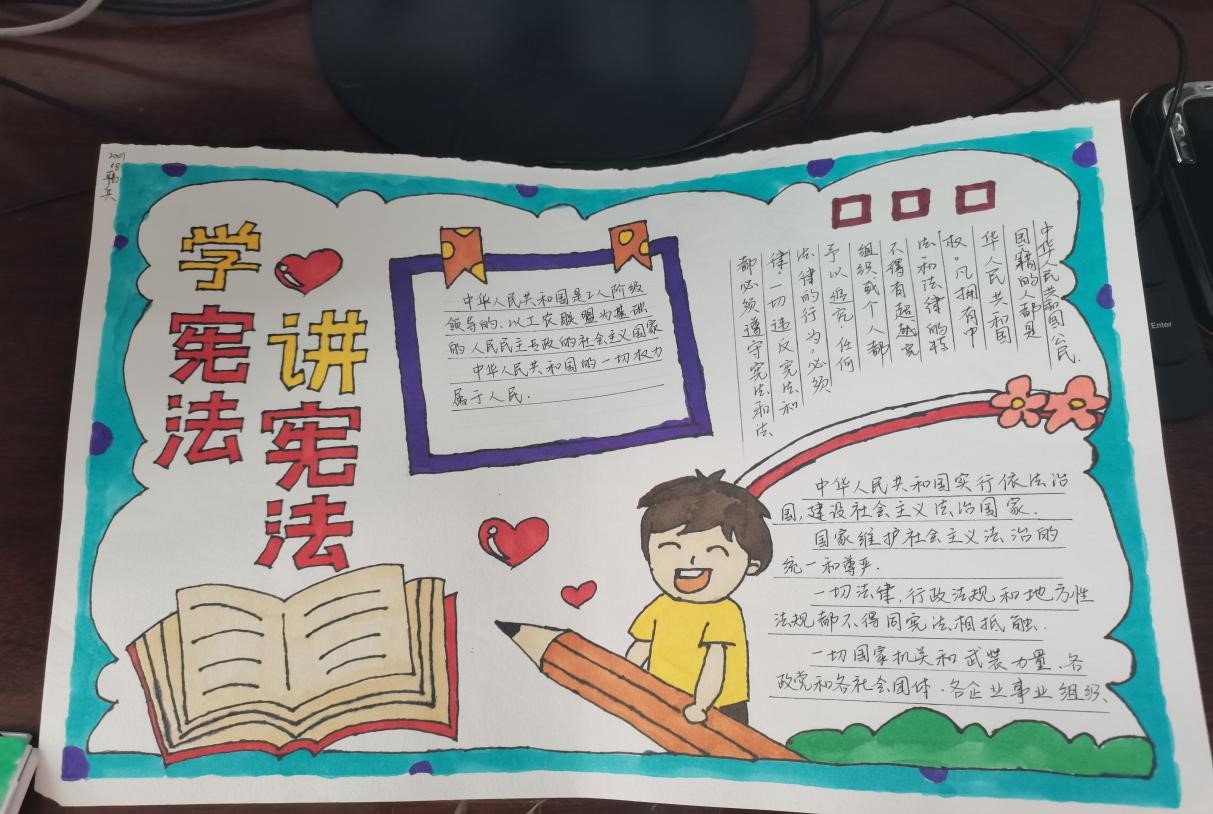 学
宪
法
讲
宪
法
中华人民共和国是工人阶级
领导的、以工农联盟为基础
的人民民主专政的社会主义国家
中华人民共和国的一切权力
属于人民.
中华人民共和国实行依法治
国,建设社会主义法治国家.
国家维护社会主义法治的
统一和尊严.
一切法律、行政法规和地方性
法规都不得同宪法相抵触.
一切国家机关和武装力量、各
政党和各社会团体、各企业事业组织、
都必须遵守宪法和法
律.一切违反宪法和
法律的行为,必须
予以追究.任何
组织或个人都
不得有超越宪
法和法律的特
权。凡拥有中
华人民共和国
国籍的人都是
中华人民共和国公民.
Enter